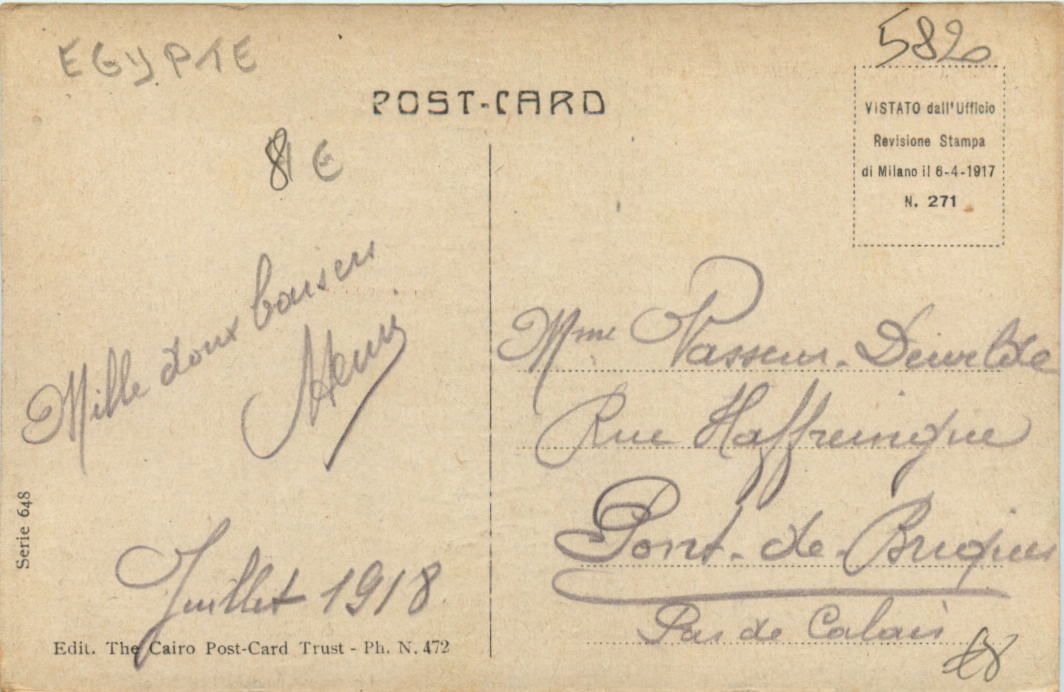 EGYPTE
5820
POST-CARD
8 €
VISTATO dall'Ufficio
Revisione Stampa
di Milano il 6-4-1917
N. 271
Mille doux baisers
Henri
Mme Vasseur-
Rue Haffreingue
Pont-de-Briques
Pas de Calais
Juillet 1918
Serie 648
Edit. The Cairo Post-Card Trust - Ph. N. 472